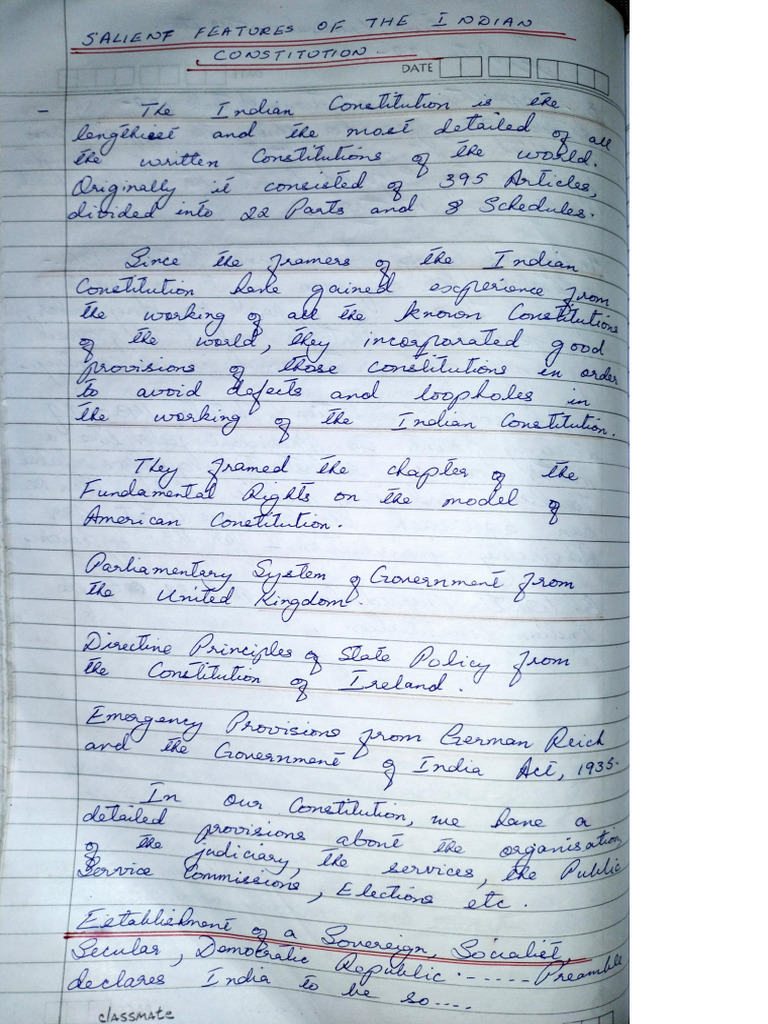 SALIENT FEATURES OF THE INDIAN
CONSTITUTION
DATE
- The Indian Constitution is the
lengthiest and the most detailed of all
the written Constitutions of the world.
Originally it consisted of 395 Articles,
divided into 22 Parts and 8 Schedules.
Since the framers of the Indian
Constitution have gained experience from
the working of all the known Constitutions
of the world, they incorporated good
provisions of those constitutions in order
to avoid defects and loopholes in
the working of the Indian Constitution.
They framed the chapter of the
Fundamental Rights on the model of
American Constitution.
Parliamentary System of Government from
the United Kingdom.
Directive Principles of State Policy from
the Constitution of Ireland.
Emergency Provisions from German Reich
and the Government of India Act, 1935.
In our Constitution, we have a
detailed provisions about the organisation
of the judiciary, the services, the Public
Service Commissions, Elections etc.
Establishment of a Sovereign, Socialist,
Secular, Democratic Republic ...... Preamble
declares India to be so....
classmate